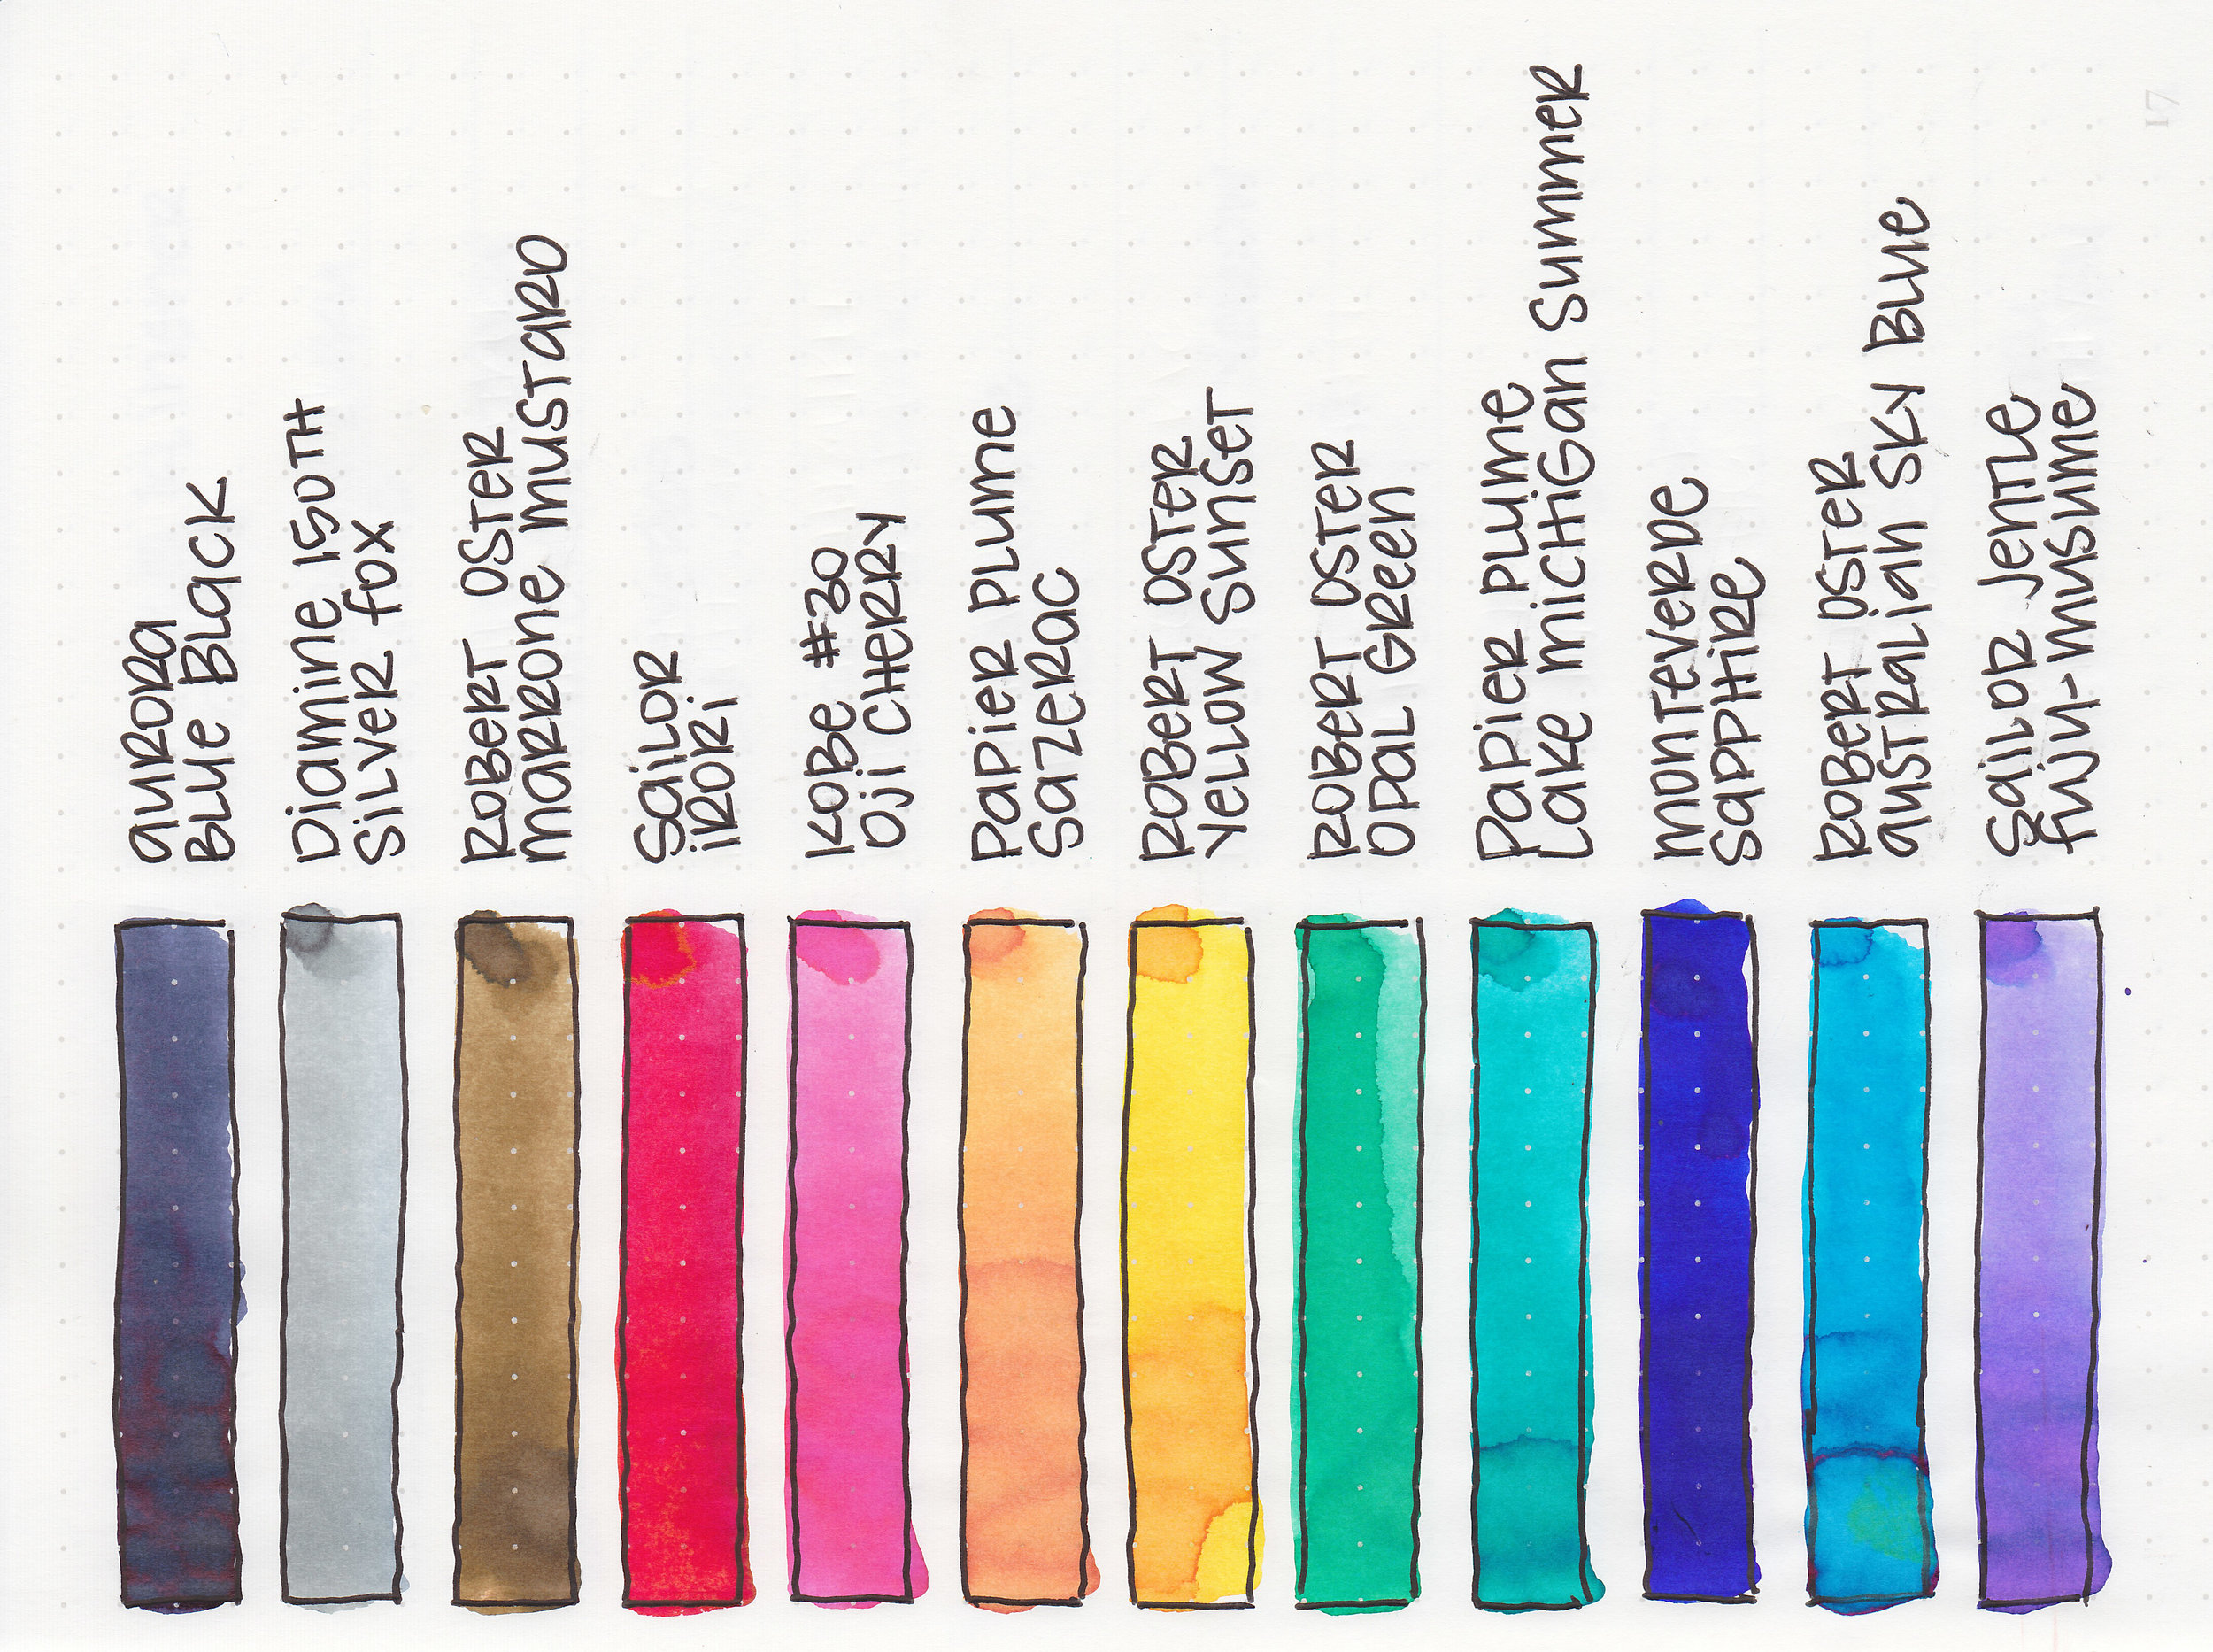 aurora
Blue Black
Diamine 150TH
Silver fox
Robert Oster
marrone mustard
Sailor
irori
Kobe #30
Oji Cherry
Papier Plume
Sazerac
Robert Oster
Yellow Sunset
Robert Oster
Opal Green
Papier Plume
Lake michiGan Summer
monteverde
Sapphire
Robert Oster
australian Sky Blue
Sailor Jentle
fuju-musume
17